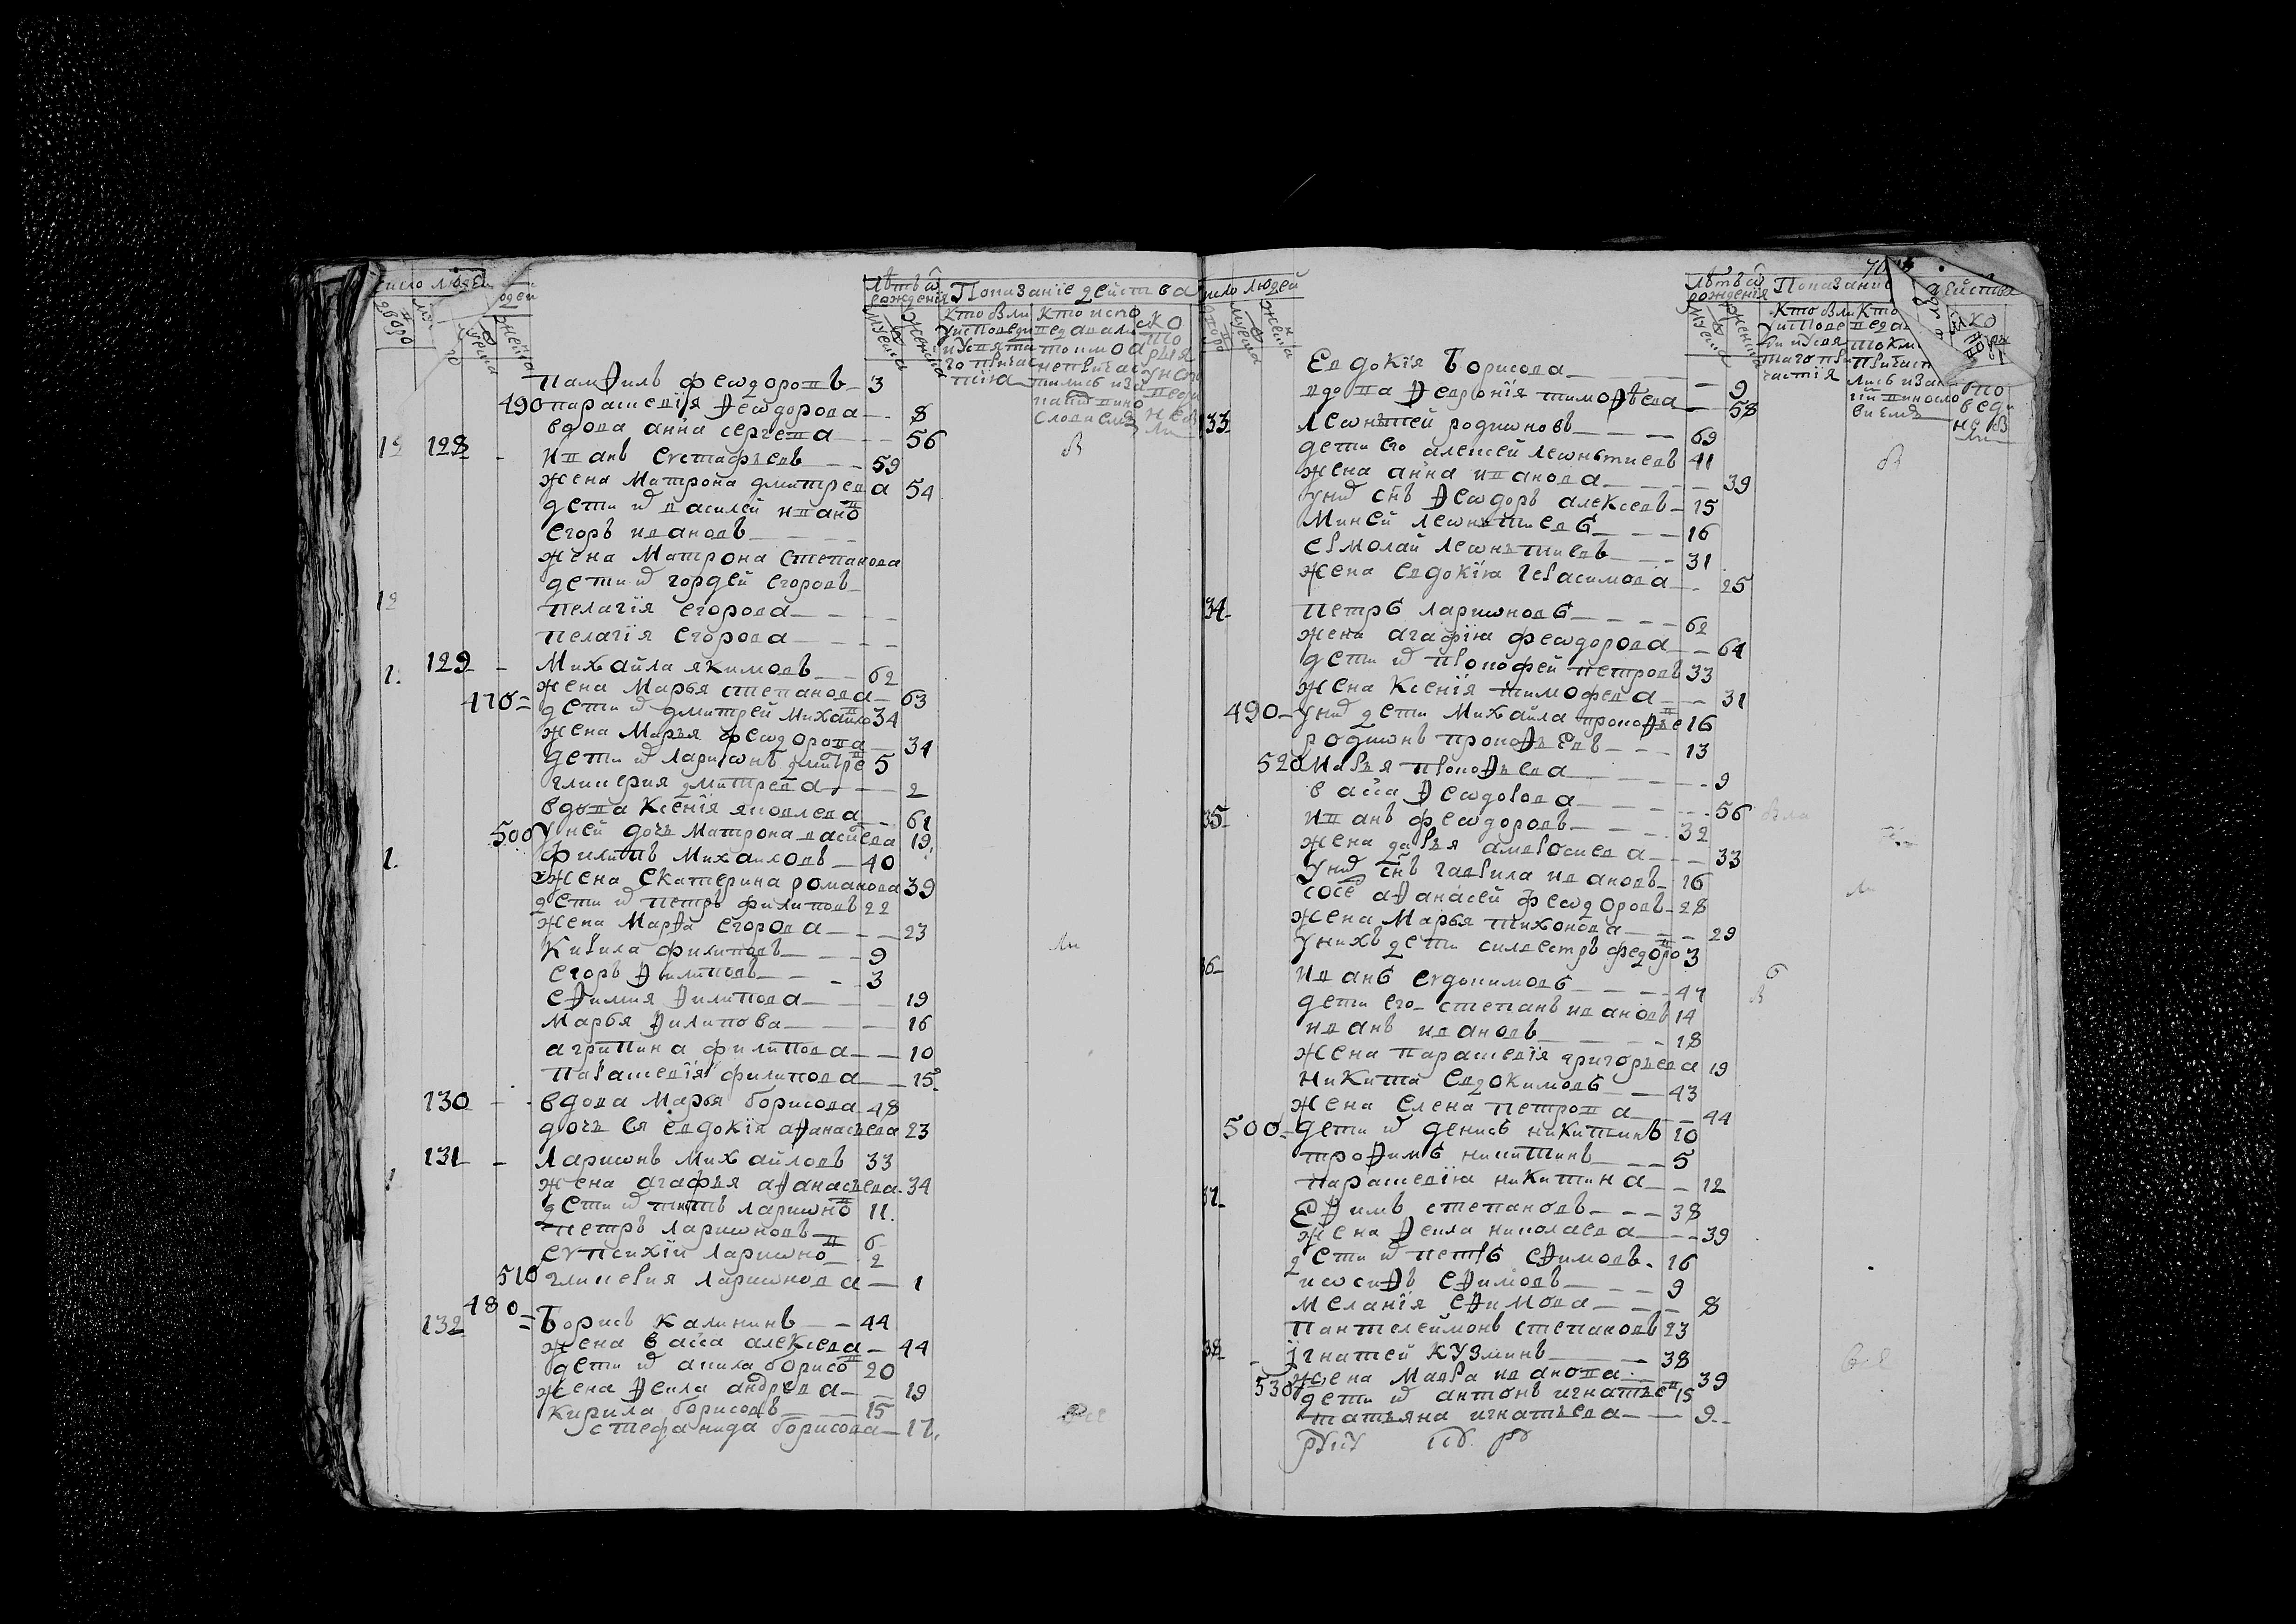 число людей
Лѣтъ ѿ рожденiя
Показанiе действа
Памфилъ Феѡдоровъ 3
490 Парасшевiя Феѡдорова 8
вдова анна сергева 56
128 Иванъ Еустафьевъ 59
жена Матрона дмитрева 54
дети ихъ василей ивано
Егоръ ивановъ
жена Матрона Степанова
дети ихъ гордей егоровъ
пелагiя егорова
пелагiя егорова
129 Михайла якимовъ 62
жена Марья степанова 63
470 дети ихъ дмитрей михайло 34
жена Марья Феѡдорова 34
дети ихъ ларiѡнъ дмитре 5
гликерия дмитрева 2
вдова Ксенiя яковлева 61
500 у ней дочь матрона васиева 19
филипъ Михаиловъ 40
жена Екатерина романова 39
дети ихъ петръ филиповъ 22
жена Марфа Егорова 23
Кирила филиповъ 9
Егоръ Филиповъ 3
Ефимия Филипова 19
Марья Филипова 16
агрипина филипова 10
Парасшевiя филипова 15
130 вдова Марья борисова 48
дочь ея евдокiя афанасьева 23
131 Лариѡнъ Михайловъ 33
жена агафья афанасьева 34
дети ихъ титъ лариѡно 11
петръ лариѡновъ 6
Еупсихiй лариѡно 2
510 гликерия лариѡнова 1
480
132 Борисъ Калининъ 44
жена васса алексева 44
дети ихъ акила борисо 20
жена Фекла андрева 19
Кирила борисовъ 15
стефанида борисова 17
число людей
Лѣтъ ѿ рожденiя
Показанiе
Евдокiя Борисова 9
вдова Февронiя тимофѣева 58
33 Леѡнтей родиѡновъ 69
дети его алексей леѡнътиевъ 41
жена анна иванова 39
у них снъ Феѡдоръ алексеевъ 15
Миней леѡнътиевъ 16
ермолай леѡнътиевъ 31
жена евдокiя герасимова 25
34 Петръ лариѡновъ 62
жена агафiя феѡдорова 64
дети ихъ прокофей петровъ 33
жена Ксенiя тимофева 31
490 у них дети Михайла прокофье 16
родиѡнъ прокофьевъ 13
520 Марья прокофьева 9
васса Феѡдорова 56
35 Иванъ феѡдоровъ 32
жена дарья амвросиева 33
у них снъ гаврила ивановъ 16
афанасей феѡдоровъ 28
жена Марья тихонова 29
у нихъ дети силвестръ федоро 3
36 Иванъ Евдокимовъ 47
дети его степанъ ивановъ 14
иванъ ивановъ 18
жена парасшевiя григорьева 19
никита Евдокимовъ 43
жена Елена петрова 44
500 дети ихъ денисъ никитинъ 10
трофимъ никитинъ 5
парасшевiя никитина 12
37 Ефимъ степановъ 38
жена Фекла николаева 39
дети ихъ петръ ефимовъ 16
иѡсифъ ефимовъ 9
меланiя ефимова 8
пантелеймонъ степановъ 23
38 Iгнатей Кузминъ 38
530 жена Мавра иванова 39
дети ихъ антонъ игнатье 15
татьяна игнатьева 9